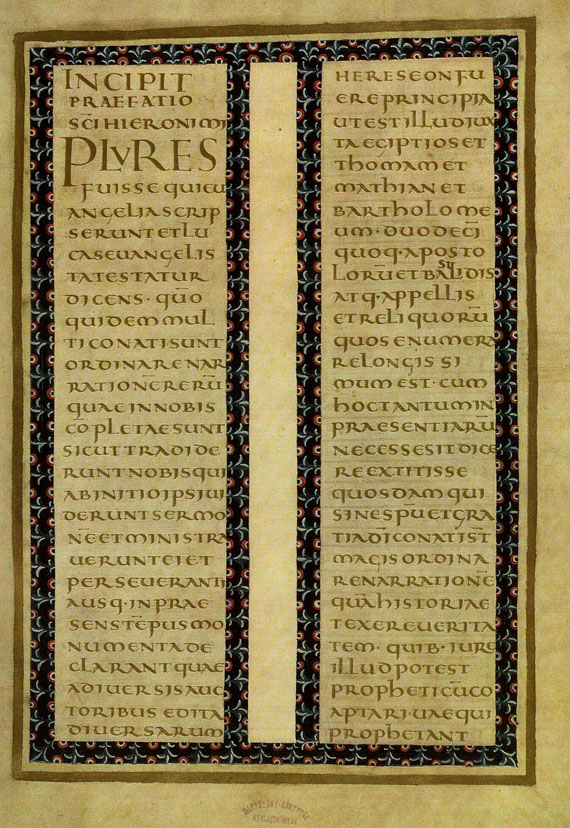 INCIPIT
PRAEFATIO
SC̄I HIERONIMI
PLVRES
FUISSE QUI EU
ANGELIA SCRIP
SERUNT ET LU
CAS EUANGELIS
TA TESTATUR
DICENS · QUŌ
QUIDEM MUL
TI CONATI SUNT
ORDINARE NAR
RATIONĒ RERŪ
QUAE IN NOBIS
CŌPLETAE SUNT
SICUT TRADIDE
RUNT NOBIS QUI
AB INITIO IPSI UI
DERUNT SERMO
NĒ ET MINISTRA
UERUNT EI ET
PERSEUERANTI
A USQ · IN PRAE
SENS TĒPUS MO
NUMENTA DE
CLARANT QUAE
A DIUERSIS AUC
TORIBUS EDITA
DIUERSARUM
HERESEON FU
ERE PRINCIPIA
UT EST ILLUD IUX
TA EGIPTIOS ET
THOMAM ET
MATHIAN ET
BARTHOLOME
UM · DUODECĪ
QUOQ · APOSTO
LORŪ ET BASILIDIS
ATQ · APPELLIS
ET RELIQUORŪ
QUOS ENUMERA
RE LONGISSI
MUM EST · CUM
HOC TANTUM IN
PRAESENTIARŪ
NECESSE SIT DICE
RE EXTITISSE
QUOSDAM QUI
SINE SPU ET GRA
TIA DĪ CONATI ST
MAGIS ORDINA
RE NARRATIONĒ
QUĀ HISTORIAE
TEXERE UERITA
TEM · QUIB · IURE
ILLUD POTEST
PROPHETICŪ CO
APTARI · UAE QUI
PROPHETANT